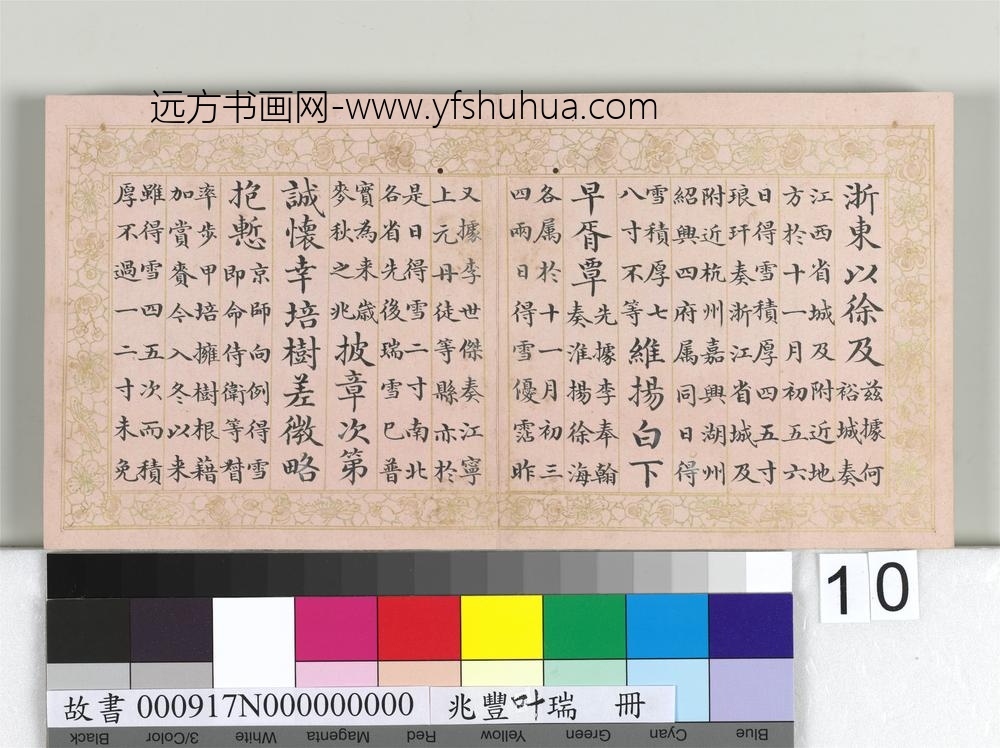 远方书画网-www.yfshuhua.com
浙東以徐及
兹據何
裕城奏
江西省城及附近地
方於十一月初五六
日得雪積厚四五寸
琅玕奏浙江省城及
附近杭州嘉興湖州
紹興四府属同日得
雪積厚七
八寸不等
維揚白下
早胥覃
先據李奉翰
奏淮揚徐海
各属於十一月初三
四兩日得雪優霑昨
又據李世傑奏江寧
上元丹徒等縣亦於
是日得雪二寸南北
各省先後瑞雪已普
實為来歲
麥秋之兆
披章次第
誠懷幸培樹差徵略
抱慙
京師向例得雪
即命侍衛等督
率步甲培擁樹根藉
加賞賚今入冬以来
雖得雪四五次而積
厚不過一二寸未免
10
故書 000917N000000000 兆豐叶瑞 冊
Blue
Cyan
Green
Yellow
Red
Magenta
White
3/Color
Black